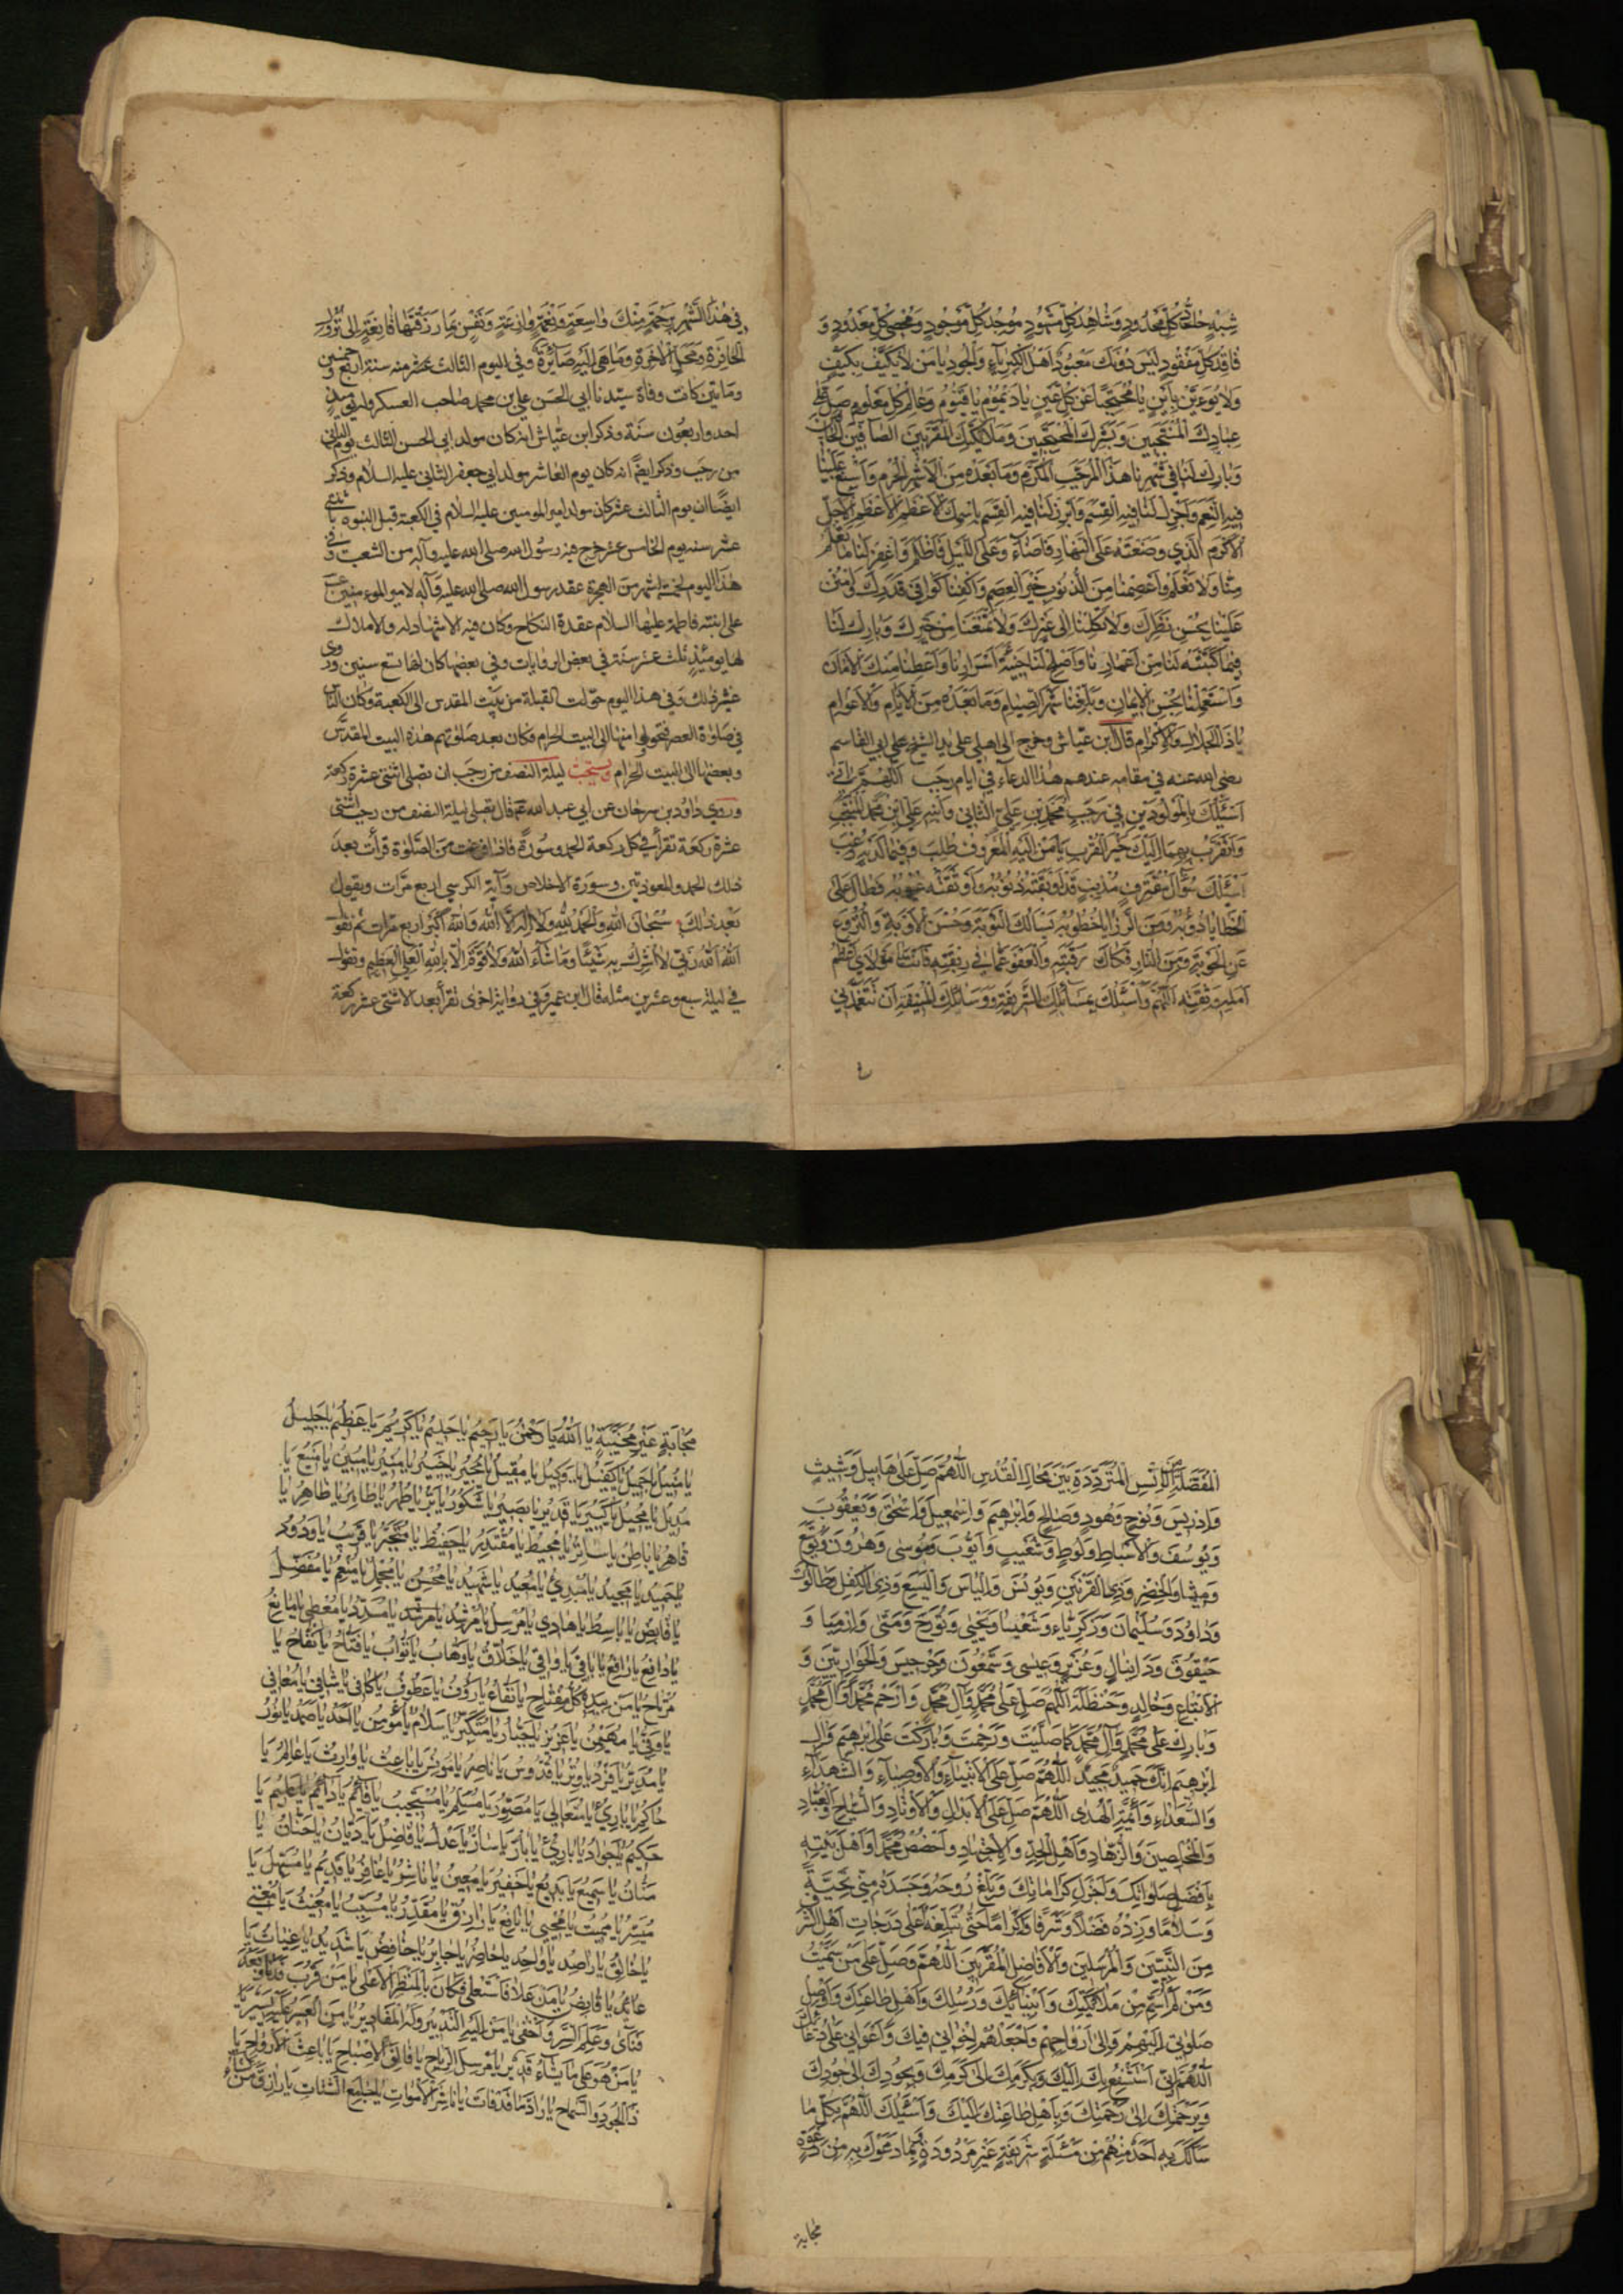 شِبْهٍ حَادَّ كُلِّ مَحْدُودٍ وَشَاهِدَ كُلِّ مَشْهُودٍ مُوجِدَ كُلِّ مَوْجُودٍ وَمُحْصِيَ كُلِّ مَعْدُودٍ وَ
فَاقِدَ كُلِّ مَفْقُودٍ لَيْسَ دُونَكَ مِنْ مَعْبُودٍ أَهْلَ الْكِبْرِيَاءِ وَالْجُودِ يَا مَنْ لَا يُكَيَّفُ بِكَيْفٍ
وَلَا يُؤَيَّنُ بِأَيْنٍ يَا مُحْتَجِبًا عَنْ كُلِّ عَيْنٍ يَا دَيْمُومُ يَا قَيُّومُ وَعَالِمَ كُلِّ مَعْلُومٍ صَلِّ عَلَى
عِبَادِكَ الْمُنْتَجَبِينَ وَبَشَرِكَ الْمُحْتَجِبِينَ وَمَلَائِكَتِكَ الْمُقَرَّبِينَ الصَّافِّينَ الْحَافِّينَ
وَبَارِكْ لَنَا فِي شَهْرِنَا هَذَا الْمُرَجَّبِ الْمُكَرَّمِ وَمَا بَعْدَهُ مِنَ الْأَشْهُرِ الْحُرُمِ وَأَسْبِغْ عَلَيْنَا
فِيهِ النِّعَمَ وَأَجْزِلْ لَنَا فِيهِ الْقِسَمَ وَأَبْرِرْ لَنَا فِيهِ الْقَسَمَ بِاسْمِكَ الْأَعْظَمِ الْأَعْظَمِ الْأَجَلِّ
الْأَكْرَمِ الَّذِي وَضَعْتَهُ عَلَى النَّهَارِ فَأَضَاءَ وَعَلَى اللَّيْلِ فَأَظْلَمَ وَاغْفِرْ لَنَا مَا تَعْلَمُ
مِنَّا وَلَا نَعْلَمُ وَاعْصِمْنَا مِنَ الذُّنُوبِ خَيْرَ الْعِصَمِ وَاكْفِنَا كَوَافِيَ قَدَرِكَ وَامْنُنْ
عَلَيْنَا بِحُسْنِ نَظَرِكَ وَلَا تَكِلْنَا إِلَى غَيْرِكَ وَلَا تَمْنَعْنَا مِنْ خَيْرِكَ وَبَارِكْ لَنَا
فِيمَا كَتَبْتَهُ لَنَا مِنْ أَعْمَارِنَا وَأَصْلِحْ لَنَا خَبِيئَةَ أَسْرَارِنَا وَأَعْطِنَا مِنْكَ الْأَمَانَ
وَاسْتَعْمِلْنَا بِحُسْنِ الْإِيمَانِ وَبَلِّغْنَا شَهْرَ الصِّيَامِ وَمَا بَعْدَهُ مِنَ الْأَيَّامِ وَالْأَعْوَامِ
يَا ذَا الْجَلَالِ وَالْإِكْرَامِ قال ابن عياش وخرج الى اهلي على يد الشيخ ابي القاسم
رضي الله عنه في مقامه عندهم هذا الدعاء في ايام رجب اَللّٰهُمَّ اِنّي
أَسْئَلُكَ بِالْمَوْلُودَيْنِ فِي رَجَبٍ مُحَمَّدِ بْنِ عَلِيٍّ الثَّانِي وَابْنِهِ عَلِيِّ ابْنِ مُحَمَّدٍ الْمُنْتَجَبِ
وَأَتَقَرَّبُ بِهِمَا إِلَيْكَ خَيْرَ الْقُرَبِ يَا مَنْ إِلَيْهِ الْمَعْرُوفُ طُلِبَ وَفِيمَا لَدَيْهِ رُغِبَ
أَسْئَلُكَ سُؤَالَ مُقْتَرِفٍ مُذْنِبٍ قَدْ أَوْبَقَتْهُ ذُنُوبُهُ وَأَوْثَقَتْهُ عُيُوبُهُ فَطَالَ عَلَى
الْخَطَايَا دُؤُبُهُ وَمِنَ الرَّزَايَا خُطُوبُهُ يَسْأَلُكَ التَّوْبَةَ وَحُسْنَ الْأَوْبَةِ وَالنُّزُوعَ
عَنِ الْحَوْبَةِ وَمِنَ النَّارِ فَكَاكَ رَقَبَتِهِ وَالْعَفْوَ عَمَّا فِي رِبْقَتِهِ فَأَنْتَ مَوْلَايَ أَعْظَمُ
أَمَلِهِ وَثِقَتِهِ اَللّٰهُمَّ وَأَسْئَلُكَ بِمَسَائِلِكَ الشَّرِيفَةِ وَوَسَائِلِكَ الْمُنِيفَةِ أَنْ تَتَغَمَّدَنِي
فِي هٰذَا الشَّهْرِ بِرَحْمَةٍ مِنْكَ وَاسِعَةٍ وَنِعْمَةٍ وَازِعَةٍ وَنَفْسٍ بِمَا رَزَقْتَهَا قَانِعَةٍ إِلَى نُزُولِ
الْحَافِرَةِ وَمَحَلِّ الْآخِرَةِ وَمَا هِيَ إِلَيْهِ صَائِرَةٌ وفي اليوم الثالث عشر منه سنة اربع وخمسين
ومائتين كانت وفاة سيدنا ابي الحسن علي بن محمد صاحب العسكر وله يومئذ
احد واربعون سنة وذكر ابن عياش انه كان مولد ابي الحسن الثالث يوم الثاني
من رجب وذكر ايضا انه كان يوم العاشر مولد ابي جعفر الثاني عليه السلام وذكر
ايضا ان يوم الثالث عشر كان مولد امير المومنين عليه السلام في الكعبة قبل النبوه باثنتي
عشر سنه يوم الخامس عشر خرج فيه رسول الله صلى الله عليه وآله من الشعب وفي
هذا اليوم لخمسة اشهر من الهجرة عقد رسول الله صلى الله عليه وآله لامير المومنين
على ابنته فاطمة عليها السلام عقدة النكاح وكان فيه الاشهاد له والاملاك
لها يومئذ ثلث عشر سنة في بعض الروايات وفي بعضها كان لها تسع سنين وروي
عشر ذلك وفي هذا اليوم حولت القبلة من بيت المقدس الى الكعبة وكان الناس
في صلوة العصر فتحولوا منها الى البيت الحرام فكان بعد صلوتهم هذه البيت المقدس
وبعضها الى البيت الحرام ويستحب ليلة النصف من رجب ان يصلى اثنتي عشرة ركعة
وروي داود بن سرحان عن ابي عبد الله ع قال يصلى ليلة النصف من رجب اثنتي
عشرة ركعة تقرأ في كل ركعة الحمد وسورة فاذا فرغت من الصلوة قرأت بعد
ذلك الحمد والمعوذتين وسورة الاخلاص وآية الكرسي اربع مرات ويقول
بعد ذلك سُبْحَانَ اللهِ وَالْحَمْدُ لِلّٰهِ وَلَا إِلٰهَ إِلَّا اللهُ وَاللهُ أَكْبَرُ اربع مرات ثم تقول
اَللهُ اَللهُ رَبِّي لَا أُشْرِكُ بِهِ شَيْئًا وَمَا شَاءَ اللهُ وَلَا قُوَّةَ إِلَّا بِاللهِ الْعَلِيِّ الْعَظِيمِ وتقول
في ليلة سبع وعشرين مثله قال ابن عمير وفي رواية اخرى تقرأ بعد الاثنتي عشر ركعة
الْمُتَرَدِّدَةِ بَيْنَ مَحَالِّ الْقُدْسِ اَللّٰهُمَّ صَلِّ عَلَى هَابِيلَ وَشِيثٍ
وَإِدْرِيسَ وَنُوحٍ وَهُودٍ وَصَالِحٍ وَإِبْرَاهِيمَ وَإِسْمٰعِيلَ وَإِسْحٰقَ وَيَعْقُوبَ
وَيُوسُفَ وَالْأَسْبَاطِ وَلُوطٍ وَشُعَيْبٍ وَأَيُّوبَ وَمُوسَى وَهٰرُونَ وَيُوشَعَ
وَمِيشَا وَالْخِضْرِ وَذِي الْقَرْنَيْنِ وَيُونُسَ وَإِلْيَاسَ وَالْيَسَعَ وَذِي الْكِفْلِ وَطَالُوتَ
وَدَاوُدَ وَسُلَيْمَانَ وَزَكَرِيَّاءَ وَشَعْيَا وَيَحْيَى وَتُورَخَ وَمَتَّى وَإِرْمِيَا وَ
حَيْقُوقَ وَدَانِيَالَ وَعُزَيْرٍ وَعِيسَى وَشَمْعُونَ وَجِرْجِيسَ وَالْحَوَارِيِّينَ وَ
الْأَتْبَاعِ وَخَالِدٍ وَحَنْظَلَةَ اَللّٰهُمَّ صَلِّ عَلَى مُحَمَّدٍ وَآلِ مُحَمَّدٍ وَارْحَمْ مُحَمَّدًا وَآلَ مُحَمَّدٍ
وَبَارِكْ عَلَى مُحَمَّدٍ وَآلِ مُحَمَّدٍ كَمَا صَلَّيْتَ وَرَحِمْتَ وَبَارَكْتَ عَلَى إِبْرٰهِيمَ وَآلِ
إِبْرٰهِيمَ إِنَّكَ حَمِيدٌ مَجِيدٌ اَللّٰهُمَّ صَلِّ عَلَى الْأَنْبِيَاءِ وَالْأَوْصِيَاءِ وَالشُّهَدَاءِ
وَالسُّعَدَاءِ وَأَئِمَّةِ الْهُدَى اَللّٰهُمَّ صَلِّ عَلَى الْأَبْدَالِ وَالْأَوْتَادِ وَالسُّيَّاحِ وَالْعُبَّادِ
وَالْمُخْلَصِينَ وَالزُّهَّادِ وَأَهْلِ الْجِدِّ وَالْإِجْتِهَادِ وَاخْصُصْ مُحَمَّدًا وَأَهْلَ بَيْتِهِ
بِأَفْضَلِ صَلَوَاتِكَ وَأَجْزَلِ كَرَامَاتِكَ وَبَلِّغْ رُوحَهُ وَجَسَدَهُ مِنِّي تَحِيَّةً
وَسَلَامًا وَزِدْهُ فَضْلًا وَشَرَفًا وَكَرَمًا حَتَّى تُبَلِّغَهُ أَعْلَى دَرَجَاتِ أَهْلِ الشَّرَفِ
مِنَ النَّبِيِّينَ وَالْمُرْسَلِينَ وَالْأَفَاضِلِ الْمُقَرَّبِينَ اَللّٰهُمَّ وَصَلِّ عَلَى مَنْ سَمَّيْتُ
وَمَنْ لَمْ أُسَمِّ مِنْ مَلَائِكَتِكَ وَأَنْبِيَائِكَ وَرُسُلِكَ وَأَهْلِ طَاعَتِكَ وَأَوْصِلْ
صَلَوَاتِي إِلَيْهِمْ وَإِلَى أَرْوَاحِهِمْ وَاجْعَلْهُمْ إِخْوَانِي فِيكَ وَأَعْوَانِي عَلَى دُعَائِكَ
اَللّٰهُمَّ إِنِّي أَسْتَشْفِعُ بِكَ إِلَيْكَ وَبِكَرَمِكَ إِلَى كَرَمِكَ وَبِجُودِكَ إِلَى جُودِكَ
وَبِرَحْمَتِكَ إِلَى رَحْمَتِكَ وَبِأَهْلِ طَاعَتِكَ إِلَيْكَ وَأَسْئَلُكَ اَللّٰهُمَّ بِكُلِّ مَا
سَأَلَكَ بِهِ أَحَدٌ مِنْهُمْ مِنْ مَسْئَلَةٍ شَرِيفَةٍ غَيْرِ مَرْدُودَةٍ وَبِمَا دَعَوْكَ بِهِ مِنْ دَعْوَةٍ
مجابة
مُجَابَةٍ غَيْرِ مُخَيَّبَةٍ يَا اَللهُ يَا رَحْمٰنُ يَا رَحِيمُ يَا حَلِيمُ يَا كَرِيمُ يَا عَظِيمُ يَا جَلِيلُ
يَا مُنِيلُ يَا جَمِيلُ يَا كَفِيلُ يَا وَكِيلُ يَا مُقِيلُ يَا مُجِيرُ يَا خَبِيرُ يَا مُنِيرُ يَا مُبِيرُ يَا مَنِيعُ يَا
مُدِيلُ يَا مُحِيلُ يَا كَبِيرُ يَا قَدِيرُ يَا بَصِيرُ يَا شَكُورُ يَا بَرُّ يَا طُهْرُ يَا طَاهِرُ يَا ظَاهِرُ يَا
قَاهِرُ يَا بَاطِنُ يَا سَاتِرُ يَا مُحِيطُ يَا مُقْتَدِرُ يَا حَفِيظُ يَا مُتَجَبِّرُ يَا قَرِيبُ يَا وَدُودُ
يَا حَمِيدُ يَا مَجِيدُ يَا مُبْدِئُ يَا مُعِيدُ يَا شَهِيدُ يَا مُحْسِنُ يَا مُجْمِلُ يَا مُنْعِمُ يَا مُفْضِلُ
يَا قَابِضُ يَا بَاسِطُ يَا هَادِي يَا مُرْسِلُ يَا مُرْشِدُ يَا مُسَدِّدُ يَا مُعْطِي يَا مَانِعُ
يَا دَافِعُ يَا رَافِعُ يَا بَاقِي يَا وَاقِي يَا خَلَّاقُ يَا وَهَّابُ يَا تَوَّابُ يَا فَتَّاحُ يَا نَفَّاحُ يَا
مُرْتَاحُ يَا مَنْ بِيَدِهِ كُلُّ مِفْتَاحٍ يَا نَفَّاعُ يَا رَؤُفُ يَا عَطُوفُ يَا كَافِي يَا شَافِي يَا مُعَافِي
يَا وَفِيُّ يَا مُهَيْمِنُ يَا عَزِيزُ يَا جَبَّارُ يَا مُتَكَبِّرُ يَا سَلَامُ يَا مُؤْمِنُ يَا أَحَدُ يَا صَمَدُ يَا نُورُ
يَا مُدَبِّرُ يَا فَرْدُ يَا وِتْرُ يَا قُدُّوسُ يَا نَاصِرُ يَا مُونِسُ يَا بَاعِثُ يَا وَارِثُ يَا عَالِمُ يَا
حَاكِمُ يَا بَارِئُ يَا مُتَعَالِي يَا مُصَوِّرُ يَا مُسَلِّمُ يَا مُسْتَجِيبُ يَا قَائِمُ يَا دَائِمُ يَا عَلِيمُ يَا
حَكِيمُ يَا جَوَادُ يَا بَارِئُ يَا بَارُّ يَا سَارُّ يَا عَدْلُ يَا فَاضِلُ يَا دَيَّانُ يَا حَنَّانُ يَا
مَنَّانُ يَا سَمِيعُ يَا بَدِيعُ يَا خَفِيرُ يَا مُعِينُ يَا نَاشِرُ يَا غَافِرُ يَا قَدِيمُ يَا مُسَهِّلُ يَا
مُيَسِّرُ يَا مُمِيتُ يَا مُحْيِي يَا نَافِعُ يَا رَازِقُ يَا مُقَدِّرُ يَا مُسَبِّبُ يَا مُغِيثُ يَا مُغْنِي
يَا خَالِقُ يَا رَاصِدُ يَا وَاحِدُ يَا حَاضِرُ يَا جَابِرُ يَا حَافِظُ يَا شَدِيدُ يَا غِيَاثُ يَا
عَائِدُ يَا قَابِضُ يَا مَنْ عَلَا فَاسْتَعْلَى فَكَانَ بِالْمَنْظَرِ الْأَعْلَى يَا مَنْ قَرُبَ فَدَنَا وَبَعُدَ
فَنَأَى وَعَلِمَ السِّرَّ وَأَخْفَى يَا مَنْ إِلَيْهِ التَّدْبِيرُ وَلَهُ الْمَقَادِيرُ يَا مَنِ الْعَسِيرُ عَلَيْهِ يَسِيرٌ يَا
يَا مَنْ هُوَ عَلَى مَا يَشَاءُ قَدِيرٌ يَا مُرْسِلَ الرِّيَاحِ يَا فَالِقَ الْأَصْبَاحِ يَا بَاعِثَ الْأَرْوَاحِ يَا
ذَا الْجُودِ وَالسَّمَاحِ يَا رَادَّ مَا قَدْ فَاتَ يَا نَاشِرَ الْأَمْوَاتِ يَا جَامِعَ الشَّتَاتِ يَا رَازِقَ مَنْ يَشَاءُ